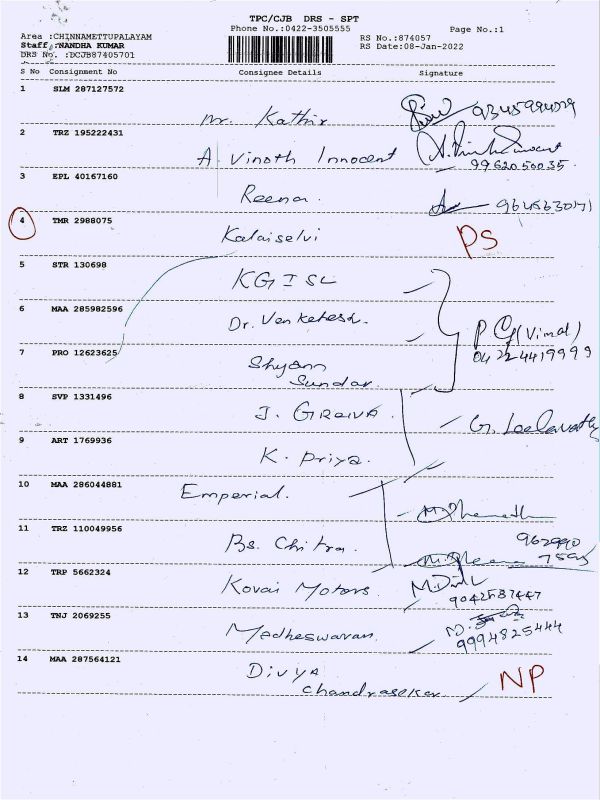 TPC/CJB DRS - SPT
Phone No.:0422-3505555 Page No.:1
Area :CHINNAMETTUPALAYAM RS No.:874057
Staff :NANDHA KUMAR RS Date:08-Jan-2022
DRS No. :DCJB87405701
S No Consignment No Consignee Details Signature
1 SLM 287127572
Mr. Kathir
2 TRZ 195222431
A. Vinoth Innocent
9962050035
3 EPL 40167160
Reena
4 TMR 2988075
Kalaiselvi PS
5 STR 130698
KGISL
6 MAA 285982596
Dr. Venketesh. PG(Vimal)
7 PRO 12623625 04224419999
Shyam
Sundar
8 SVP 1331496
J. G. Leelavathy
9 ART 1769936
K. Priya
10 MAA 286044881
Emperial.
11 TRZ 110049956 962990
Bs. Chitra. 7595
12 TRP 5662324
Kovai Motors
9042587447
13 TNJ 2069255
Madheswaran
9994825444
14 MAA 287564121
Divya NP
Chandrasekar